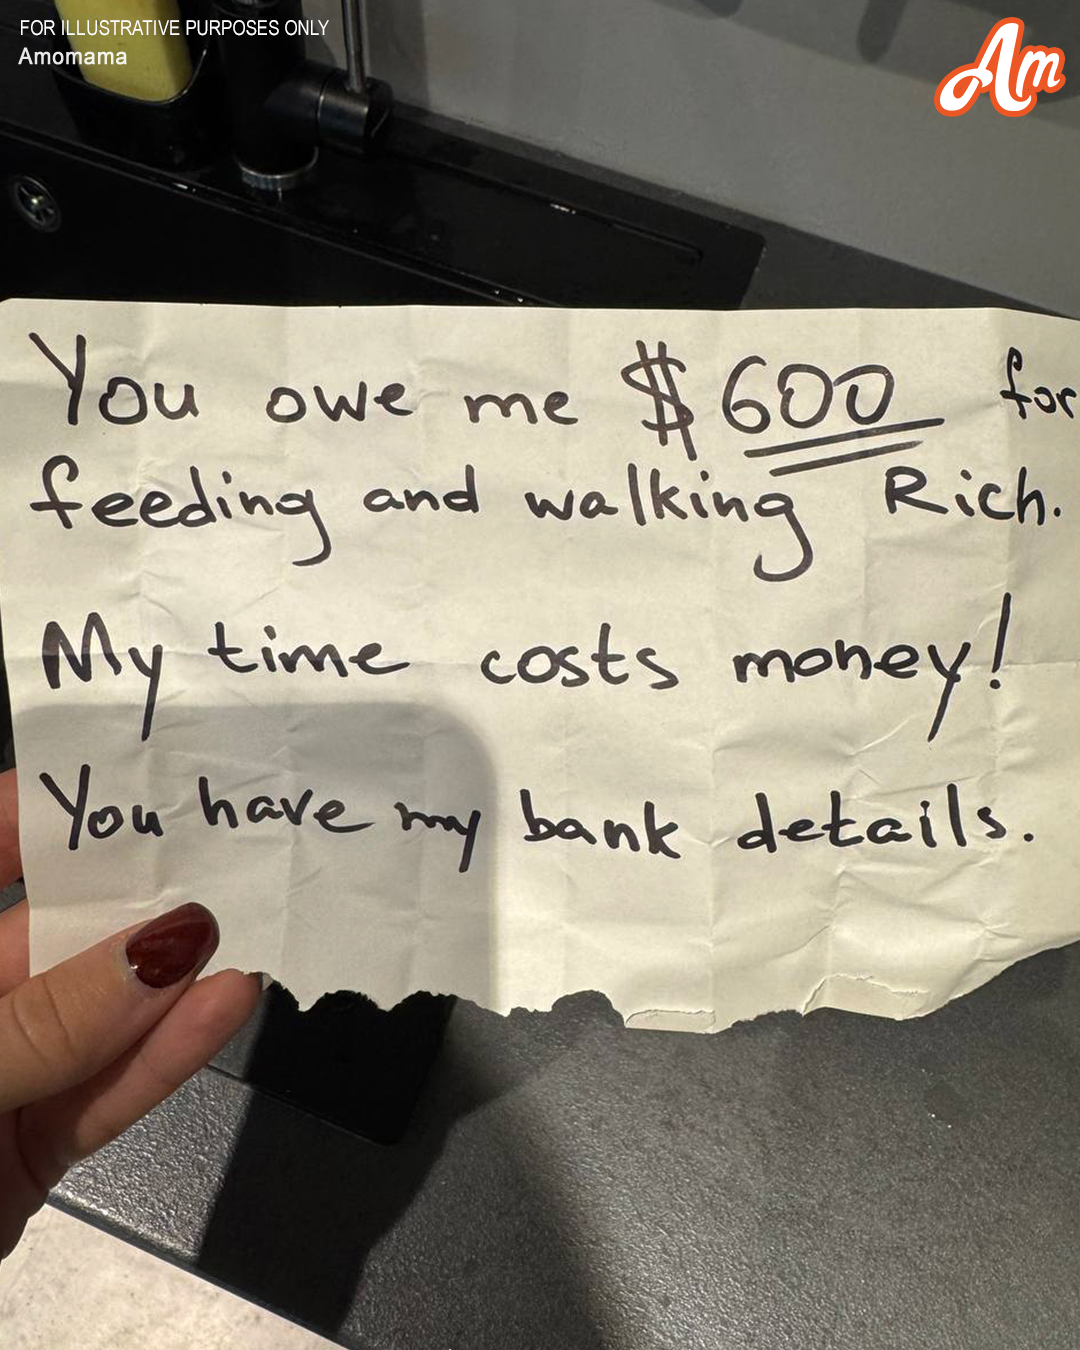 FOR ILLUSTRATIVE PURPOSES ONLY
Amomama
Am
You owe me $600 for
feeding and walking Rich.
My time costs money!
You have my bank details.